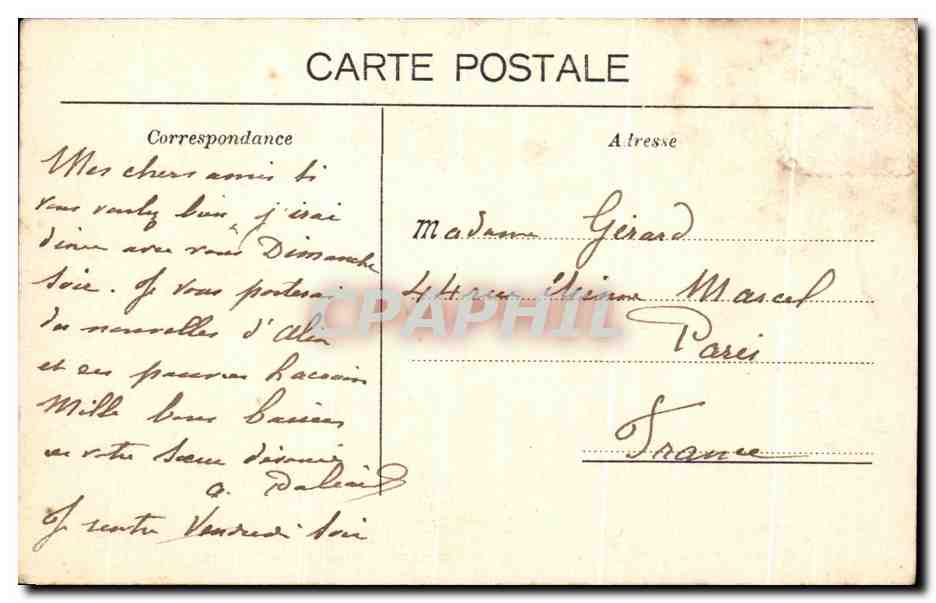 CARTE POSTALE
Correspondance
Mes chers amis si
vous voulez bien, j'irai
diner avec vous Dimanche
soir. Je vous porterai
des nouvelles d'
et ses pauvres
Mille bons baisers
de votre sœur
a.
Je rentre Vendredi soir
Adresse
Madame Gérard
44 rue Etienne Marcel
Paris
France
CPAPHIL